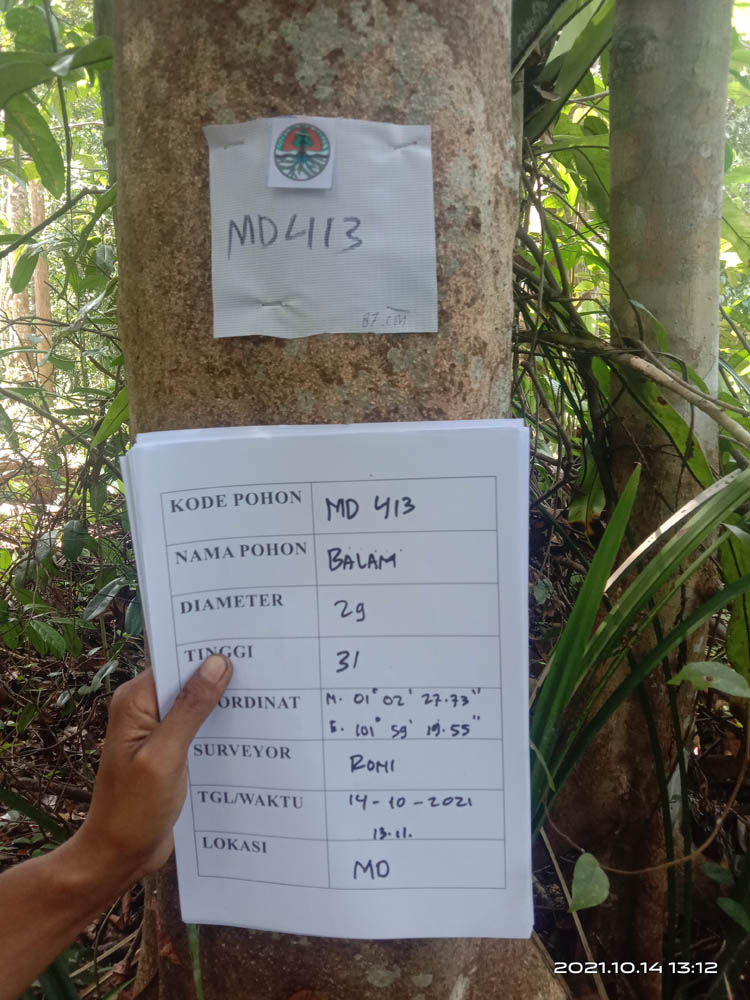 MD413
87.cm
KODE POHON MD 413
NAMA POHON BALAM
DIAMETER 29
TINGGI 31
ORDINAT N. 01° 02' 27.73"
E. 101° 59' 19.55"
SURVEYOR ROMI
TGL/WAKTU 14-10-2021
13.11.
LOKASI MD
2021.10.14 13:12